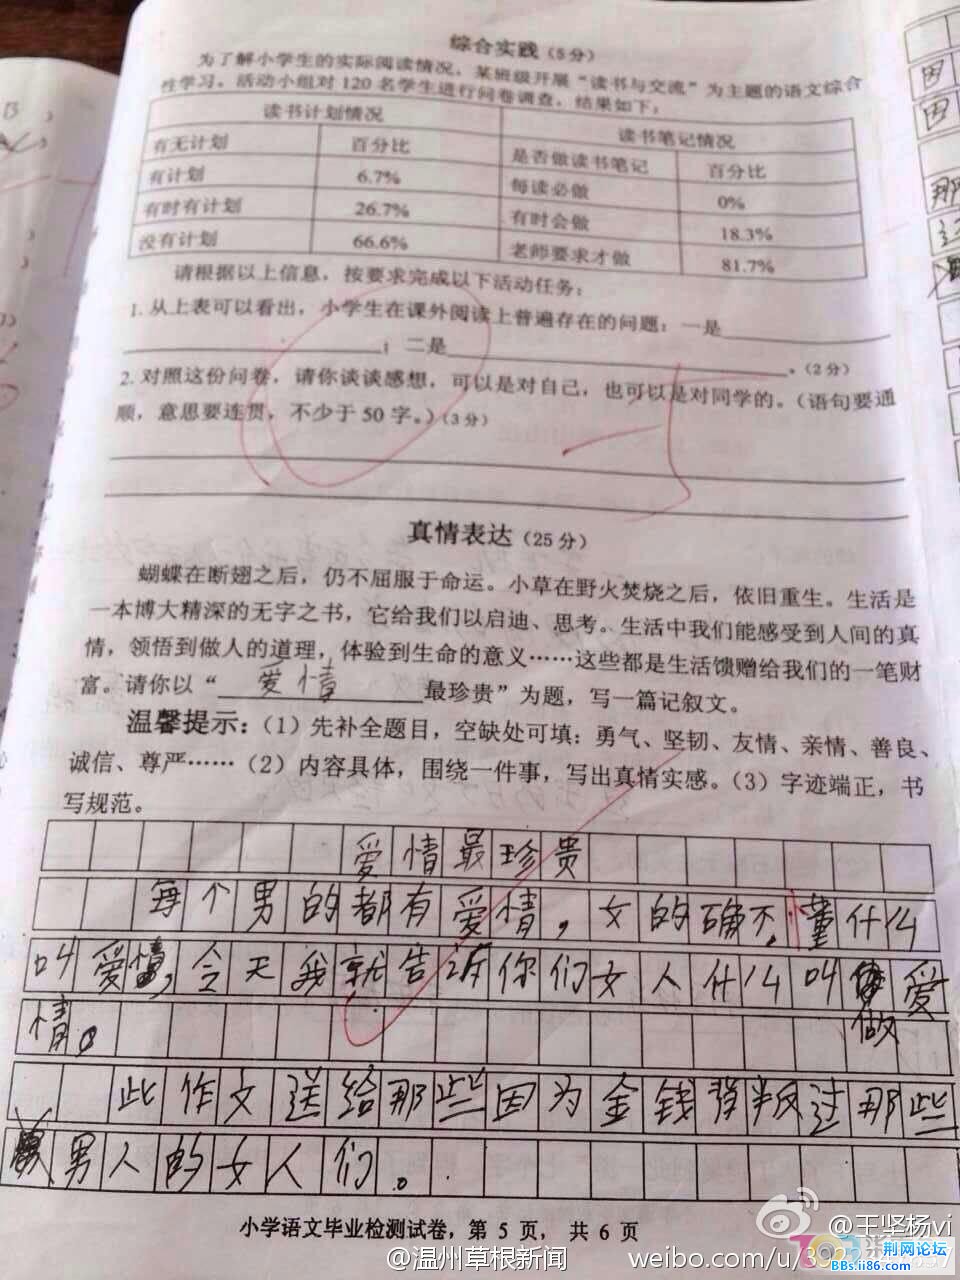 综合实践（5分）
为了解小学生的实际阅读情况，某班级开展“读书与交流”为主题的语文综合
性学习。活动小组对120名学生进行问卷调查，结果如下：
读书计划情况 读书笔记情况
有无计划 百分比 是否做读书笔记 百分比
有计划 6.7% 每读必做 0%
有时有计划 26.7% 有时会做 18.3%
没有计划 66.6% 老师要求才做 81.7%
请根据以上信息，按要求完成以下活动任务：
1. 从上表可以看出，小学生在课外阅读上普遍存在的问题：一是
；二是 。（2分）
2. 对照这份问卷，请你谈谈感想，可以是对自己，也可以是对同学的。（语句要通
顺，意思要连贯，不少于50字。）（3分）
真情表达（25分）
蝴蝶在断翅之后，仍不屈服于命运。小草在野火焚烧之后，依旧重生。生活是
一本博大精深的无字之书，它给我们以启迪、思考。生活中我们能感受到人间的真
情，领悟到做人的道理，体验到生命的意义……这些都是生活馈赠给我们的一笔财
富。请你以“ 爱情 最珍贵”为题，写一篇记叙文。
温馨提示：（1）先补全题目，空缺处可填：勇气、坚韧、友情、亲情、善良、
诚信、尊严……（2）内容具体，围绕一件事，写出真情实感。（3）字迹端正，书
写规范。
爱情最珍贵
每个男的都有爱情，女的确不懂什么
叫爱情，今天我就告诉你们女人什么叫做爱
情。
此作文送给那些因为金钱背叛过那些
男人的女人们。
小学语文毕业检测试卷，第 5 页，共 6 页
@王坚杨vi
@温州草根新闻 weibo.com/u/302
荆网论坛
BBs.ii86.com
因
因
那